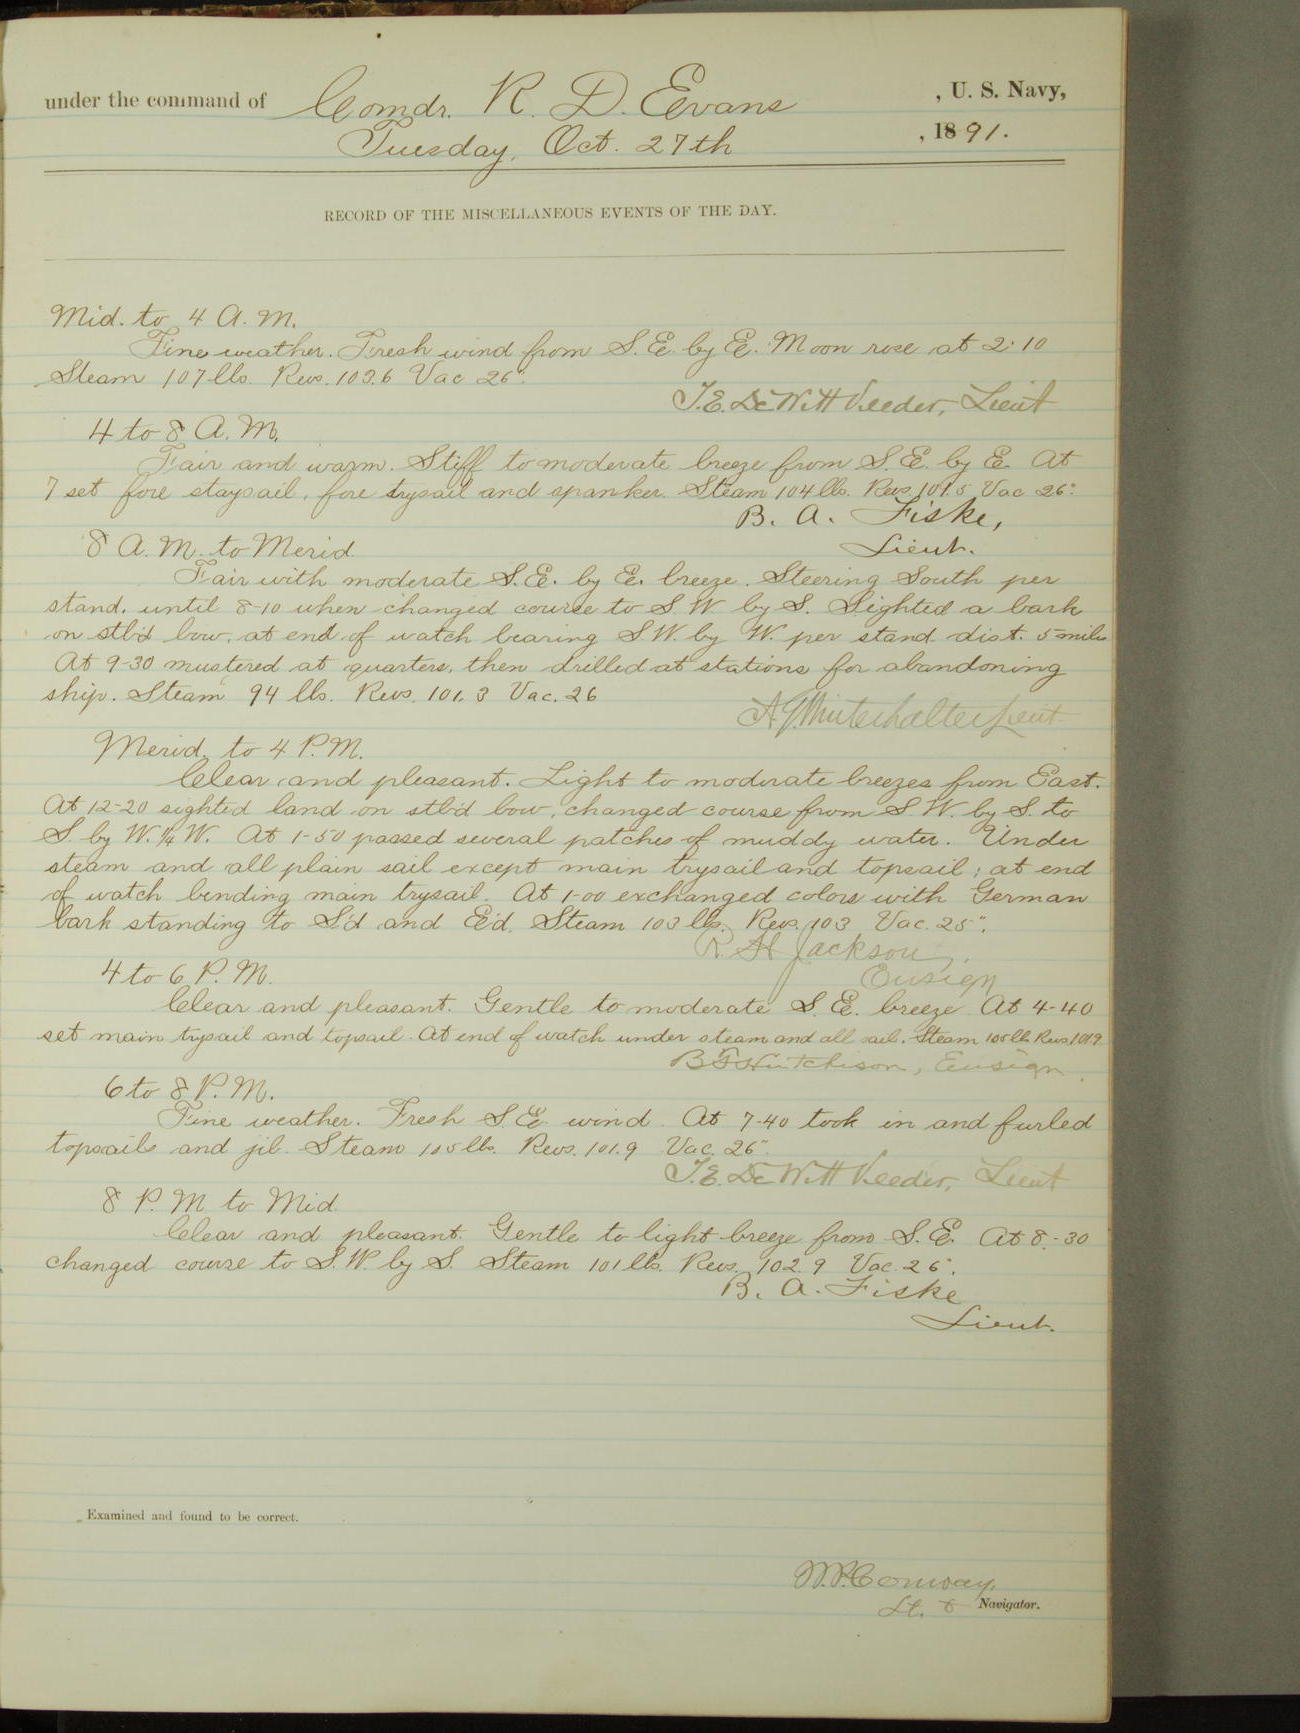 under the command of Comdr. R. D. Evans, U. S. Navy,
Tuesday, Oct. 27th, 1891.
RECORD OF THE MISCELLANEOUS EVENTS OF THE DAY.
Mid. to 4 A.M.
Fine weather. Fresh wind from S.E. by E. Moon rose at 2:10
Steam 107 lbs. Revs. 103.6 Vac 26".
T.E. DeWitt Veeder, Lieut
4 to 8 A.M.
Fair and warm. Stiff to moderate breeze from S.E. by E. At
7 set fore staysail, fore trysail and spanker. Steam 104 lbs. Revs. 101.5 Vac 26".
B. A. Fiske,
Lieut.
8 A.M. to Merid.
Fair with moderate S.E. by E. breeze. Steering South per
stand. until 8-10 when changed course to S.W. by S. Sighted a bark
on stb'd bow, at end of watch bearing S.W. by W. per stand. dist. 5 miles
At 9-30 mustered at quarters, then drilled at stations for abandoning
ship. Steam 94 lbs. Revs. 101.3 Vac. 26
A.G. Winterhalter Lieut
Merid. to 4 P.M.
Clear and pleasant. Light to moderate breezes from East.
At 12-20 sighted land on stb'd bow, changed course from S.W. by S. to
S. by W. ¼ W. At 1-50 passed several patches of muddy water. Under
steam and all plain sail except main trysail and topsail; at end
of watch bending main trysail. At 1-00 exchanged colors with German
bark standing to S'd and E'd. Steam 103 lbs. Revs. 103 Vac. 25".
R. H. Jackson,
Ensign
4 to 6 P.M.
Clear and pleasant. Gentle to moderate S.E. breeze. At 4-40
set main trysail and topsail. At end of watch under steam and all sail. Steam 105 lb. Revs. 101.9
B F Hutchison, Ensign.
6 to 8 P.M.
Fine weather. Fresh S.E. wind. At 7-40 took in and furled
topsails and jib. Steam 105 lbs. Revs. 101.9 Vac. 26"
T.E. DeWitt Veeder, Lieut
8 P.M. to Mid.
Clear and pleasant. Gentle to light breeze from S.E. At 8-30
changed course to S.W. by S. Steam 101 lbs. Revs. 102.9 Vac. 26".
B. A. Fiske
Lieut.
Examined and found to be correct.
W.P. Conway,
Lt. & Navigator.